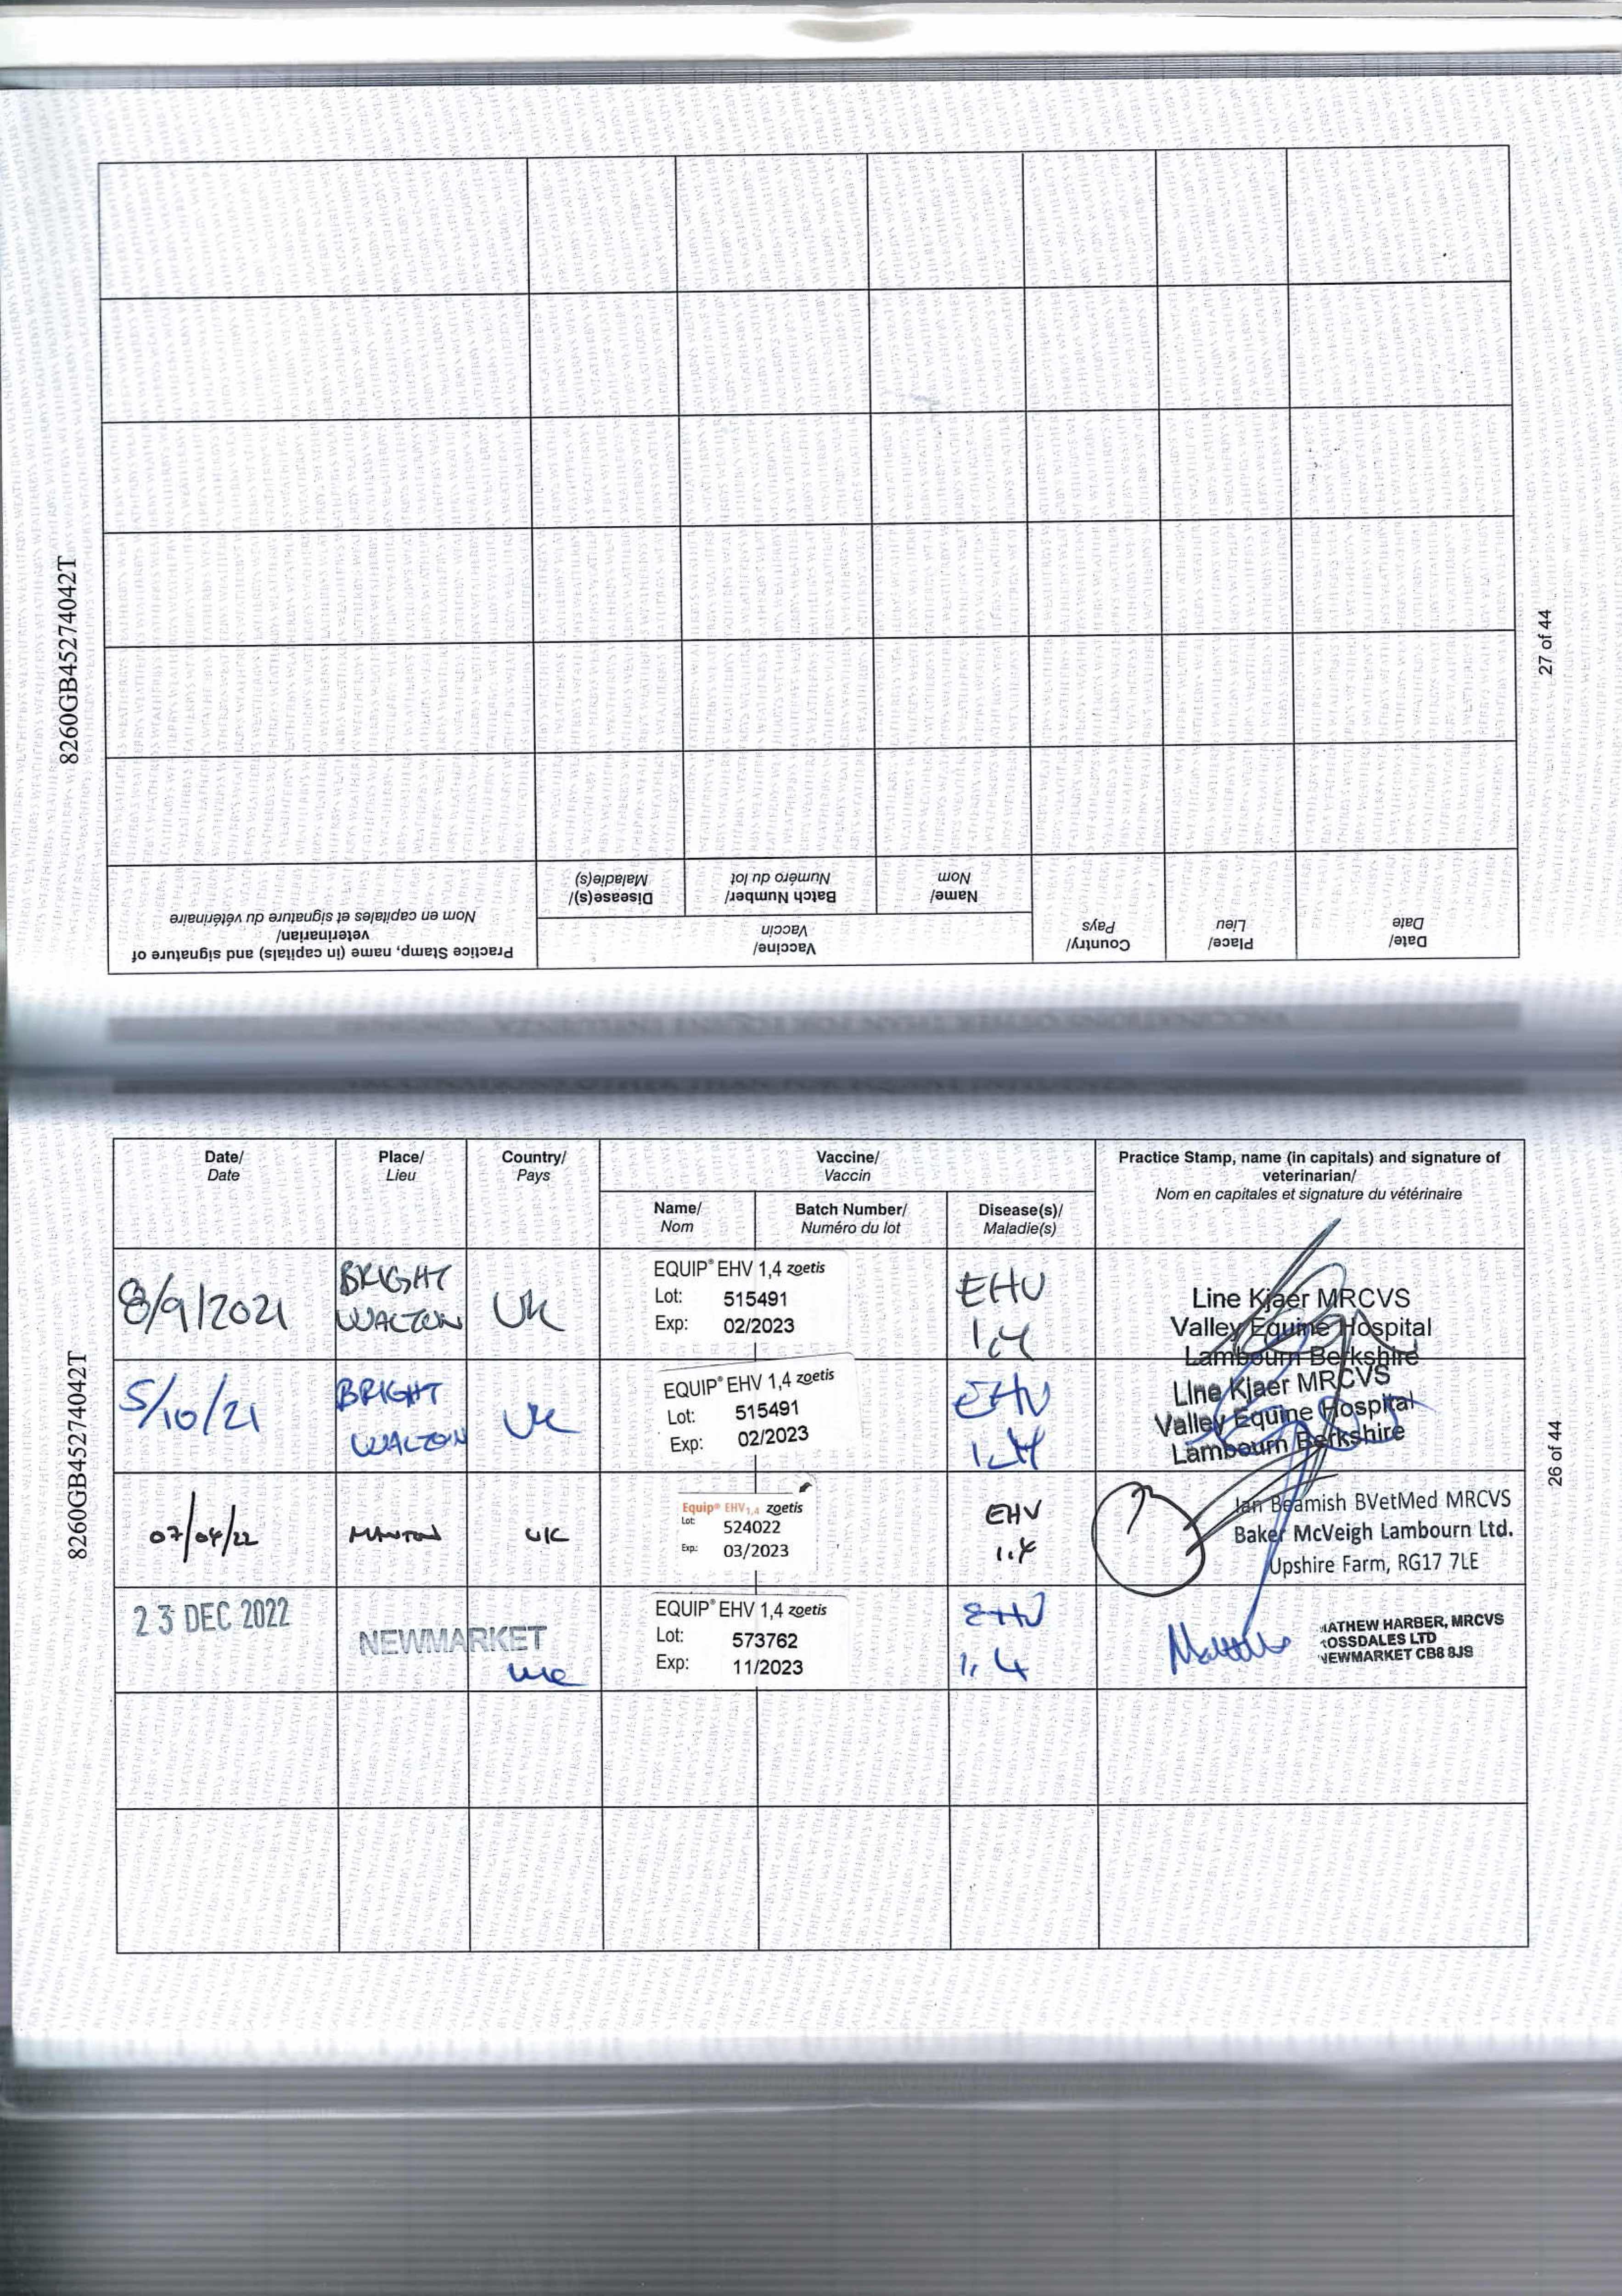 8260GB45274042T
27 of 44
Date/
Date
Place/
Lieu
Country/
Pays
Vaccine/
Vaccin
Name/
Nom
Batch Number/
Numéro du lot
Disease(s)/
Maladie(s)
Practice Stamp, name (in capitals) and signature of
veterinarian/
Nom en capitales et signature du vétérinaire
8260GB45274042T
26 of 44
Date/
Date
Place/
Lieu
Country/
Pays
Vaccine/
Vaccin
Name/
Nom
Batch Number/
Numéro du lot
Disease(s)/
Maladie(s)
Practice Stamp, name (in capitals) and signature of
veterinarian/
Nom en capitales et signature du vétérinaire
8/9/2021
BRIGHT
WALTON
UK
EQUIP® EHV 1,4 zoetis
Lot: 515491
Exp: 02/2023
EHV
1,4
Line Kjaer MRCVS
Valley Equine Hospital
Lambourn Berkshire
5/10/21
BRIGHT
WALTON
UK
EQUIP® EHV 1,4 zoetis
Lot: 515491
Exp: 02/2023
EHV
1,4
Line Kjaer MRCVS
Valley Equine Hospital
Lambourn Berkshire
07/04/22
MANTON
UK
Equip® EHV1,4 zoetis
Lot: 524022
Exp: 03/2023
EHV
1,4
Ian Beamish BVetMed MRCVS
Baker McVeigh Lambourn Ltd.
Upshire Farm, RG17 7LE
23 DEC 2022
NEWMARKET
UK
EQUIP® EHV 1,4 zoetis
Lot: 573762
Exp: 11/2023
EHV
1,4
ATHEW HARBER, MRCVS
OSSDALES LTD
NEWMARKET CB8 8JS